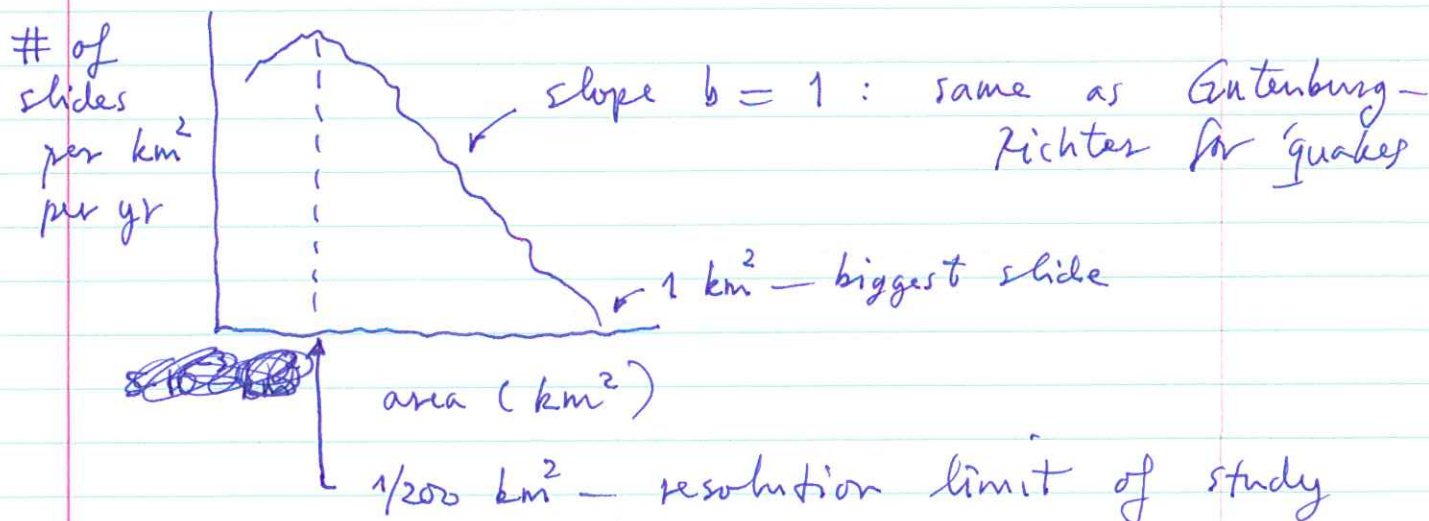 # of
slides
per km²
per yr
slope b = 1 : same as Gutenburg-
Richter for 'quakes
1 km² — biggest slide
area (km²)
1/200 km² — resolution limit of study